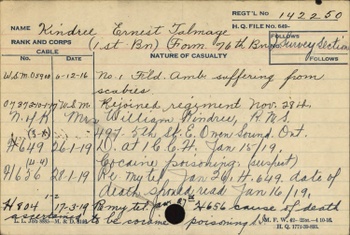 REGT'L No 142250
H. Q. FILE No. 649-
NAME Kindree Ernest Talmage
RANK AND CORPS (1st Bn) Form. 76th Bn Survey Section
FOLLOWS
CABLE
No. DATE NATURE OF CASUALTY FOLLOWS
6-12-16 No. 1 Fld. Amb. suffering from
scabies
Rejoined regiment Nov. 28th.
N.O.K. Mrs William Kindree, R.M.S.
497. 5th St. E. Owen Sound. Ont.
H649 26-1-19 D. at 1 C.C.H. Jan 15/19,
Cocaine poisoning. (suspect)
H656 28-1-19 Re my tel, Jan 26, H.649, date of
death should read Jan 16/19,
H804 17-3-19 Re my tel, Jan H656 cause of death
ascertained to be cocaine poisoning
M. F. W. 42